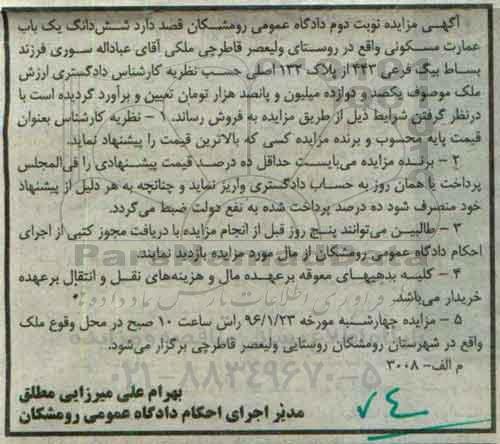 آگهی مزایده نوبت دوم دادگاه عمومی رومشکان قصد دارد شش‌دانگ یک باب
عمارت مسکونی واقع در روستای ولیعصر قاطرچی ملکی آقای عباداله سوری فرزند
بساط بیگ فرعی ۴۴۳ از پلاک ۱۳۲ اصلی حسب نظریه کارشناس دادگستری ارزش
ملک موصوف یکصد و دوازده میلیون و پانصد هزار تومان تعیین و برآورد گردیده است با
درنظر گرفتن شرایط ذیل از طریق مزایده به فروش رساند. ۱ - نظریه کارشناس بعنوان
قیمت پایه محسوب و برنده مزایده کسی که بالاترین قیمت را پیشنهاد نماید.
۲ - برنده مزایده می‌بایست حداقل ده درصد قیمت پیشنهادی را فی‌المجلس
پرداخت یا همان روز به حساب دادگستری واریز نماید و چنانچه به هر دلیل از پیشنهاد
خود منصرف شود ده درصد پرداخت شده به نفع دولت ضبط می‌گردد.
۳ - طالبین می‌توانند پنج روز قبل از انجام مزایده با دریافت مجوز کتبی از اجرای
احکام دادگاه عمومی رومشکان از مال مورد مزایده بازدید نمایند.
۴ - کلیه بدهیهای معوقه برعهده مال و هزینه‌های نقل و انتقال برعهده
خریدار می‌باشد.
۵ - مزایده چهارشنبه مورخه ۹۶/۱/۲۳ راس ساعت ۱۰ صبح در محل وقوع ملک
واقع در شهرستان رومشکان روستایی ولیعصر قاطرچی برگزار می‌شود.
م الف- ۳۰۰۸
۰۲۱-۸۸۳۴۹۶۷۰-۵
بهرام علی میرزایی مطلق
مدیر اجرای احکام دادگاه عمومی رومشکان
۷۴